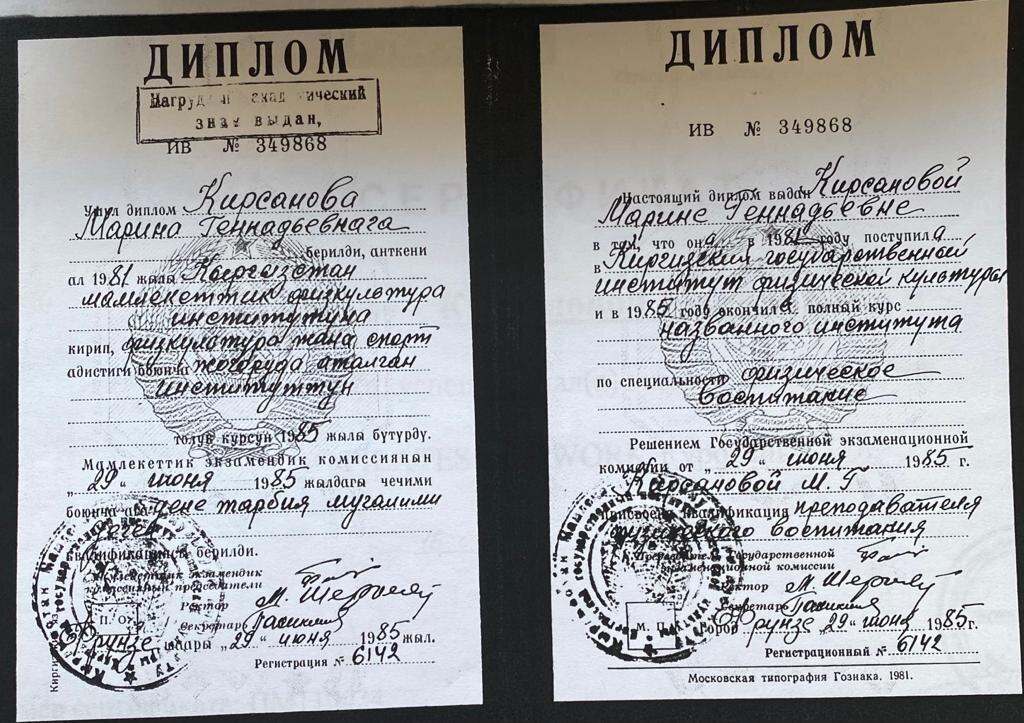 ДИПЛОМ
знак выдан,
ИВ № 349868
Ушул диплом Кирсанова
Марина Геннадьевнага
берилди, анткени
ал 1981 жылы Кыргызстан
мамлекеттик физкультура
институтуна
кирип, физкультура жана спорт
адистиги боюнча жогоруда аталган
институттун
толук курсун 1985 жылы бүтүрдү.
Мамлекеттик экзамендик комиссиянын
„29“ июня 1985 жылдагы чечими
боюнча ага дене тарбия мугалими
квалификациясы берилди.
Мамлекеттик экзамендик
комиссиянын председатели
Ректор
Секретарь
П. О.
Фрунзе шаары „29“ июня 1985 жыл.
Регистрация № 6142
ДИПЛОМ
ИВ № 349868
Настоящий диплом выдан Кирсановой
Марине Геннадьевне
в том, что она в 1981 году поступила
в Киргизский государственный
институт физической культуры
и в 1985 году окончила полный курс
названного института
по специальности физическое
воспитание
Решением Государственной экзаменационной
комиссии от „29“ июня 1985 г.
Кирсановой М. Г
присвоена квалификация преподавателя
физического воспитания
Председатель Государственной
экзаменационной комиссии
Ректор
Секретарь
М. П.
Город Фрунзе „29“ июня 1985 г.
Регистрационный № 6142
Московская типография Гознака. 1981.